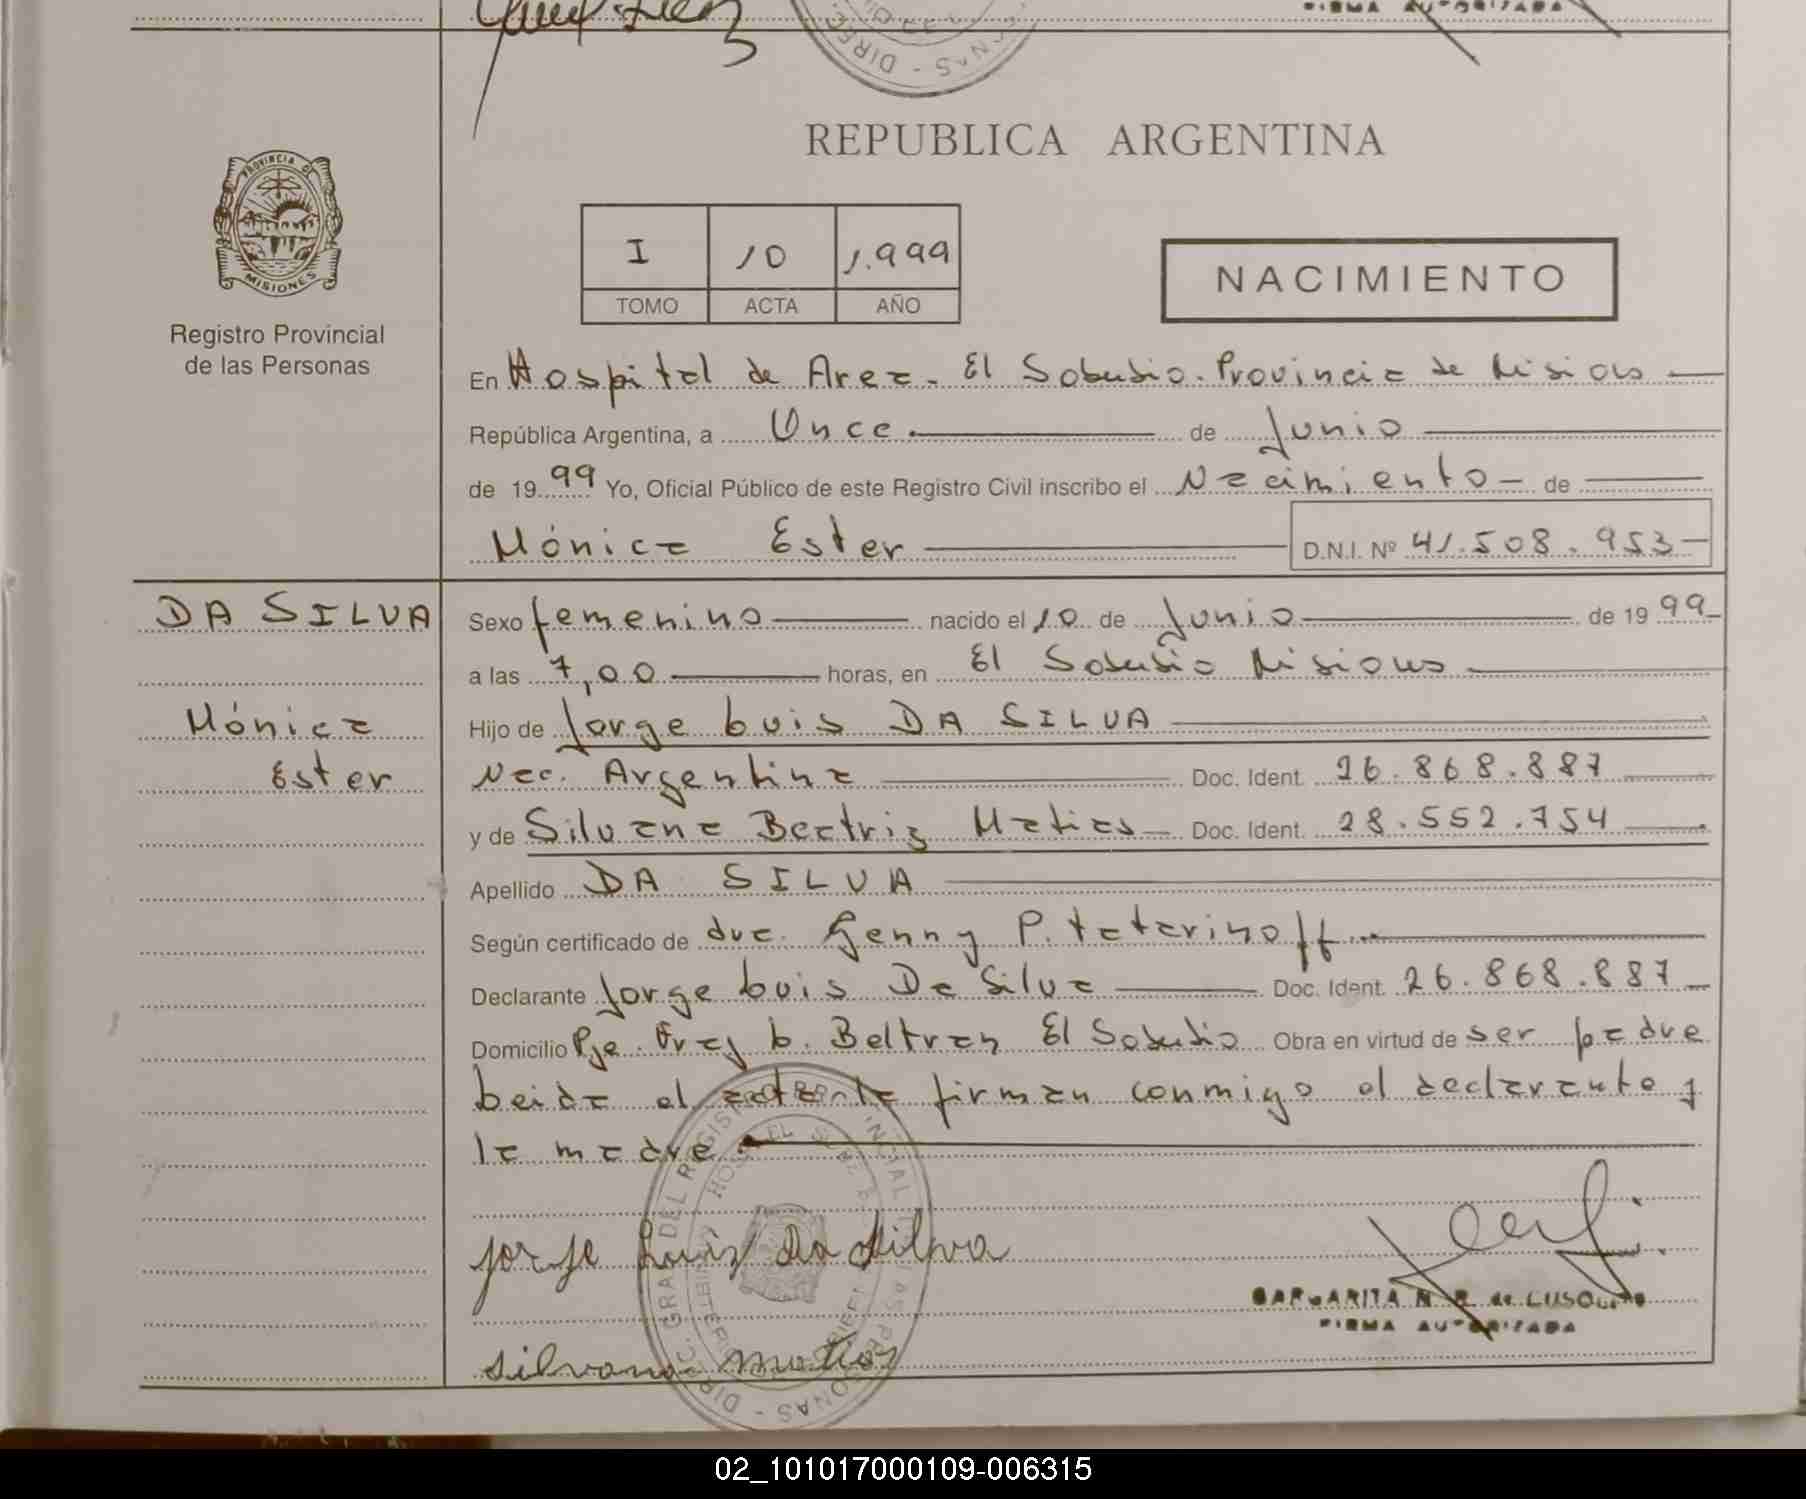 FIRMA AUTORIZADA
DIREC NAS
REPUBLICA ARGENTINA
PROVINCIA DE
MISIONES
Registro Provincial
de las Personas
I 10 1.999
TOMO ACTA AÑO
NACIMIENTO
En Hospital de Area. El Soberbio. Provincia de Misiones
República Argentina, a Once. de Junio
de 1999 Yo, Oficial Público de este Registro Civil inscribo el Nacimiento - de
Mónica Ester D.N.I. Nº 41.508.953
DA SILVA Sexo femenino nacido el 10 de Junio de 1999
a las 7,00 horas, en El Soberbio Misiones
Mónica Hijo de Jorge Luis DA SILVA
Ester Nac. Argentina Doc. Ident. 26.868.887
y de Silvana Beatriz Matias Doc. Ident. 28.552.754
Apellido DA SILVA
Según certificado de dra. Genny P. Tatarinoff
Declarante Jorge Luis Da Silva Doc. Ident. 26.868.887
Domicilio Pje. Fray L. Beltran El Soberbio Obra en virtud de ser padre
Leida el acta firman conmigo el declarante y
la madre
Jorje Luiz Da Silva
MARGARITA N. R. de LUSQUI
FIRMA AUTORIZADA
silvana matias
02_101017000109-006315